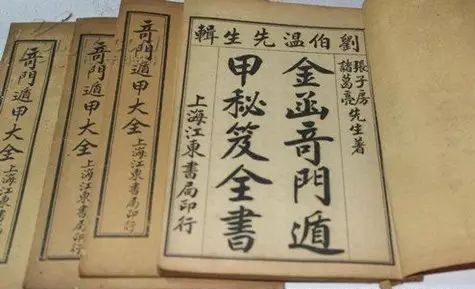 劉伯温先生輯
張子房
諸葛亮先生著
金函竒門遁
甲秘笈全書
上海江東書局印行
竒門遁甲大全
上海江東書局印行
竒門遁甲大全
上海江東書局印行
竒門遁甲大全
上海江東書局印行